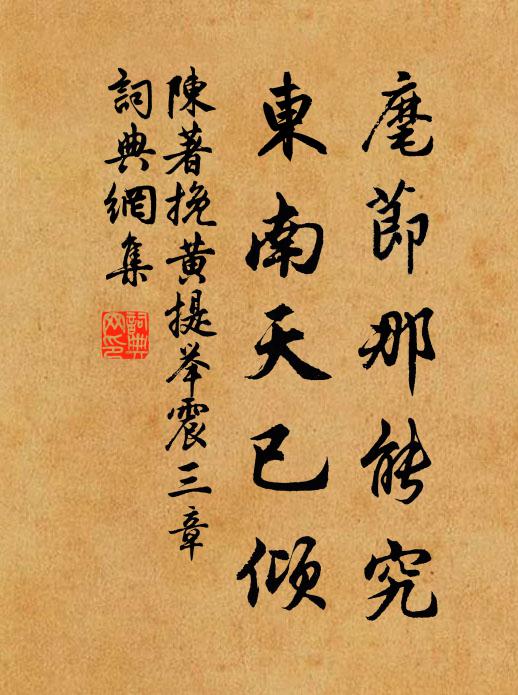 麾節那能究
東南天已傾
陳著挽黃提舉震三章
詞典網集
詞典網印